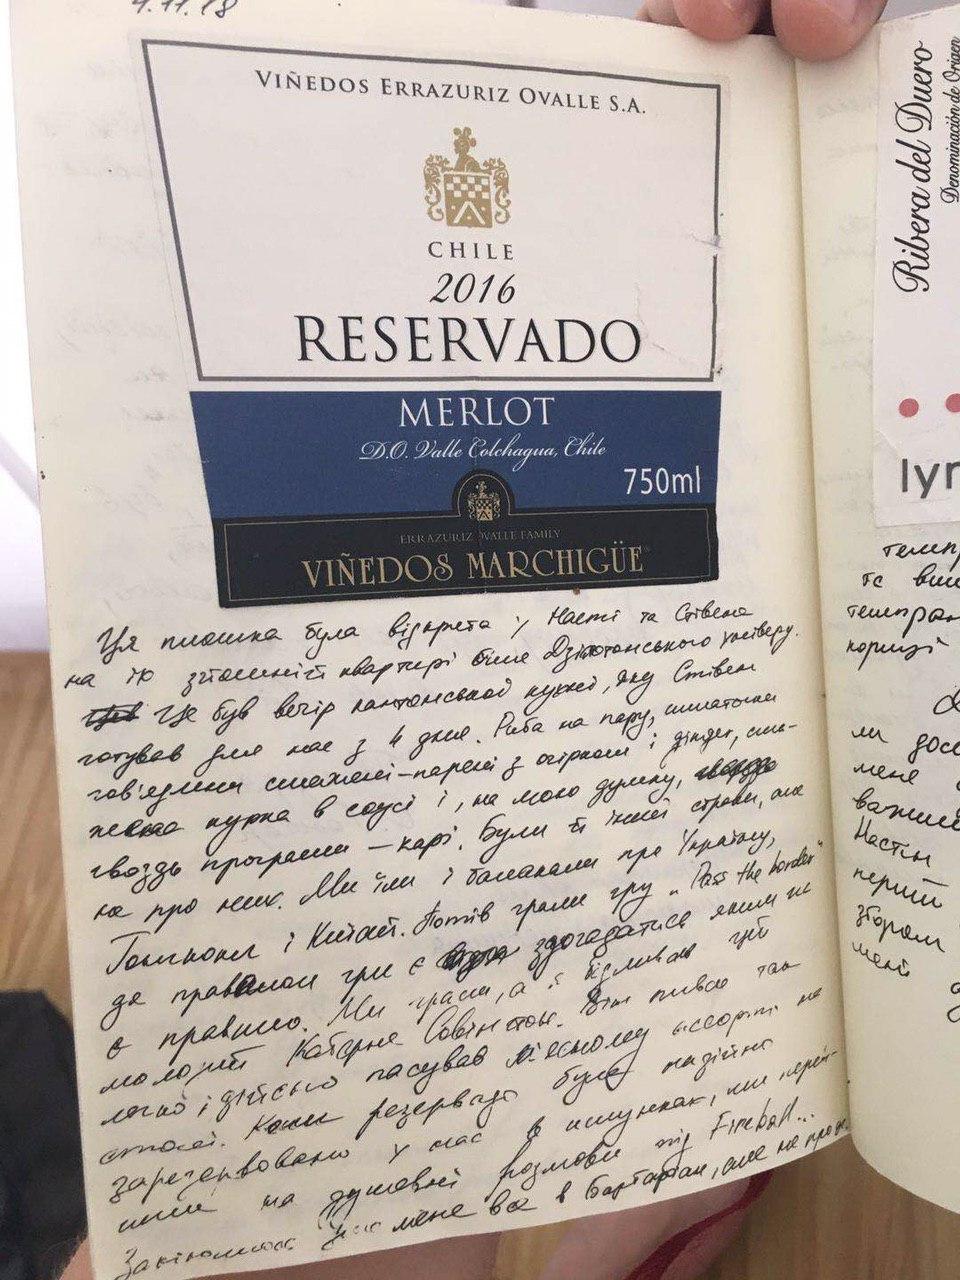 4.11.18
VIÑEDOS ERRAZURIZ OVALLE S.A.
CHILE
2016
RESERVADO
MERLOT
D.O. Valle Colchagua, Chile
750ml
ERRAZURIZ OVALLE FAMILY
VIÑEDOS MARCHIGÜE
Ця пляшка була відкрита у Насті та Стівена
на їх квартирі біля універу.
Це був вечір кантонської кухні, яку Стівен
готував для нас з 4 днів. Риба на пару, шматочки
гов'ядини смажені-парені з огірком і джінджер,
курка в соусі і, на мою думку,
гвоздь програми – карі. Були й інші страви, але
не про них. Ми їли і балакали про Україну,
Гонконг і Китай. Потім грали гру „Pass the border"
де правилом гри є здогадатися яким же
є правило. Ми грали, а я відливав цей
молодий Каберне Совіньйон. Він пився так
легко і дійсно пасував м'ясному ассорті на
столі. Коли резервадо було надійно
зарезервовано у нас в шлунках, ми перей-
шли на душевні розмови під Fireball...
Закінчилося для мене все в барбарбан, але не про це.
Ribera del Duero
Denominación de Origen
lyr
та
корицi
ли
мене
Настін
перший
мені